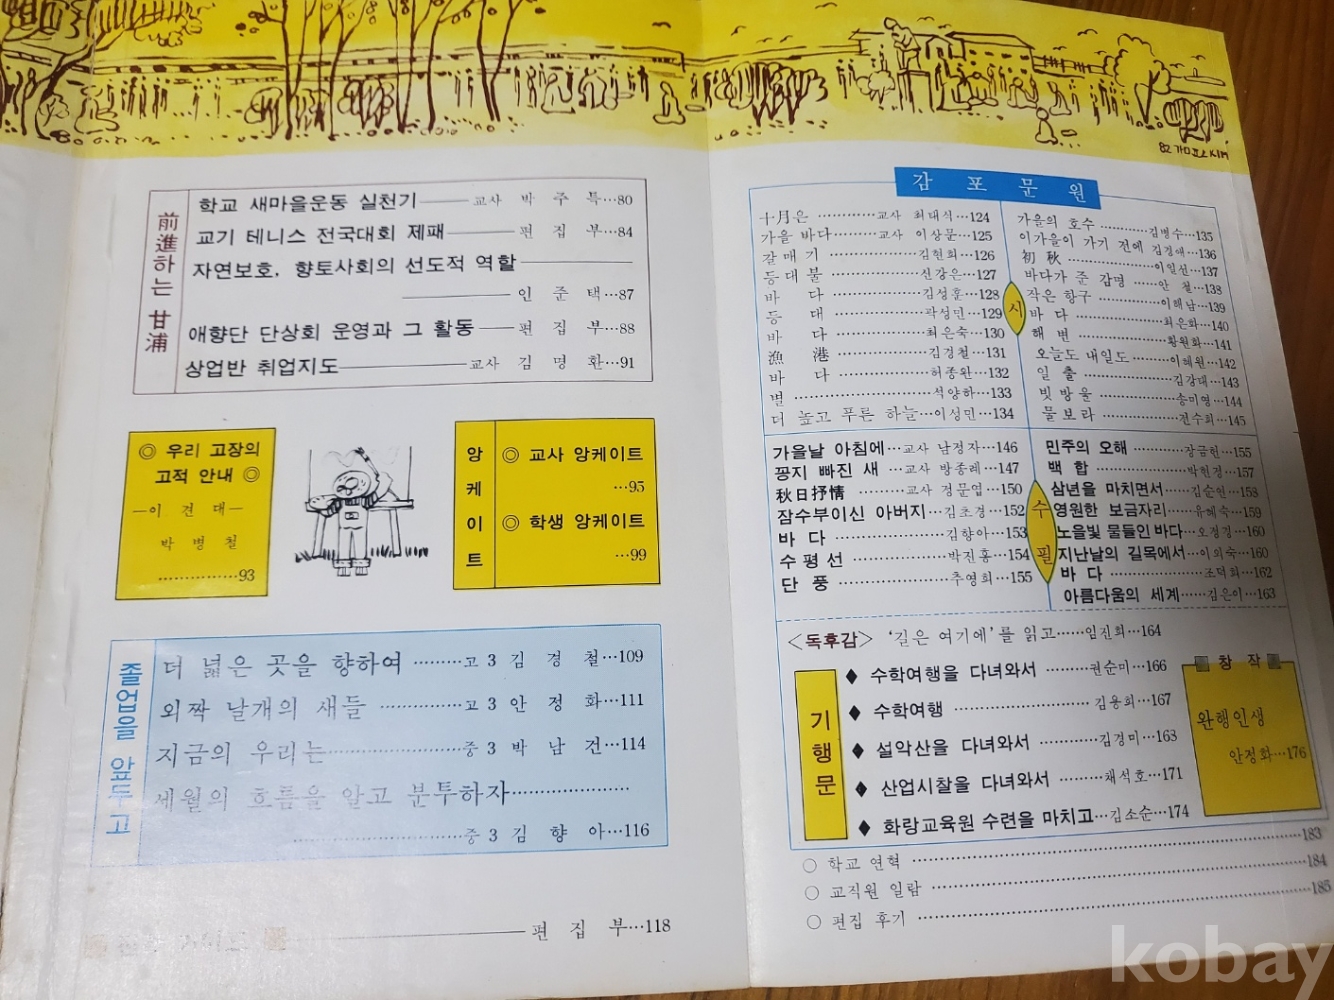 前進하는 甘浦
학교 새마을운동 실천기 교사 박주특…80
교기 테니스 전국대회 제패 편집부…84
자연보호, 향토사회의 선도적 역할
인준택…87
애향단 단상회 운영과 그 활동 편집부…88
상업반 취업지도 교사 김명환…91
◎ 우리 고장의
고적 안내 ◎
—이견대—
박병철
…93
앙케이트
◎ 교사 앙케이트
…95
◎ 학생 앙케이트
…99
졸업을 앞두고
더 넓은 곳을 향하여 ……… 고3 김경철…109
외짝 날개의 새들 ……… 고3 안정화…111
지금의 우리는 ……… 중3 박남건…114
세월의 흐름을 알고 분투하자………
중3 김향아…116
편집부…118
감포문원
시
十月은 ………교사 최대석…124
가을 바다……교사 이상문…125
갈매기 ………김현희…126
등대불 ………신강은…127
바다 ………김성훈…128
등대 ………곽성민…129
바다 ………최은숙…130
漁港 ………김경철…131
바다 ………허종완…132
별 ………석양하…133
더 높고 푸른 하늘…이성민…134
가을의 호수 ………김병수…135
이가을이 가기 전에 김정애…136
初秋 ………이일선…137
바다가 준 감명 ……안철…138
작은 항구 ………이해남…139
바다 ………최은화…140
해변 ………황원화…141
오늘도 내일도……이혜원…142
일출 ………김강대…143
빗방울 ………송미영…144
물보라 ………전수희…145
수필
가을날 아침에…교사 남정자…146
꽁지 빠진 새 …교사 방종례…147
秋日抒情 ………교사 경문엽…150
잠수부이신 아버지…김초경…152
바다 ………김향아…153
수평선 ………박진홍…154
단풍 ………추영희…155
민주의 오해 ………장금헌…155
백합 ………박현경…157
삼년을 마치면서……김순연…158
영원한 보금자리……유혜숙…159
노을빛 물들인 바다…오경경…160
지난날의 길목에서…이의숙…160
바다 ………조덕희…162
아름다움의 세계……김은이…163
<독후감> ‘길은 여기에’를 읽고……임진희…164
기행문
◆ 수학여행을 다녀와서 ………권순미…166
◆ 수학여행 ………김용희…167
◆ 설악산을 다녀와서 ………김경미…163
◆ 산업시찰을 다녀와서 ………채석호…171
◆ 화랑교육원 수련을 마치고…김소순…174
창작
완행인생
안정화…176
○ 학교 연혁 ………183
○ 교직원 일람 ………184
○ 편집 후기 ………185
kobay